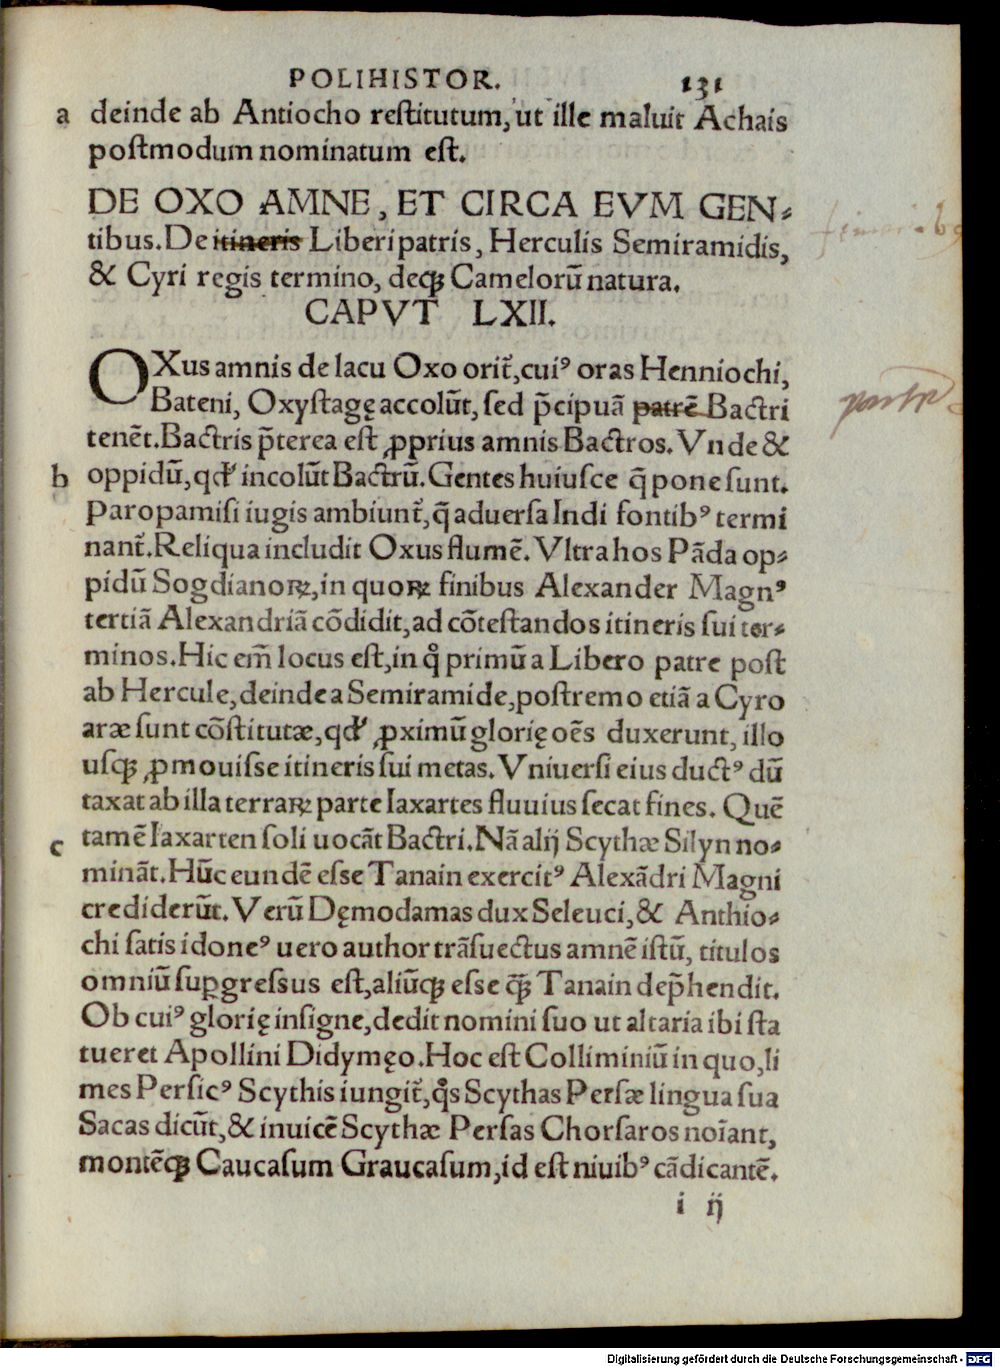 POLIHISTOR. 131
a deinde ab Antiocho reſtitutum, ut ille maluit Achais
poſtmodum nominatum eſt.
DE OXO AMNE, ET CIRCA EVM GEN⸗
tibus. De itineris Liberi patris, Herculis Semiramidis,
& Cyri regis termino, deqꝫ Camelorū natura.
CAPVT LXII.
OXus amnis de lacu Oxo orit᷑, cuiꝰ oras Henniochi,
Bateni, Oxyſtagę accolūt, ſed p̄cipuā patrē Bactri
tenēt. Bactris p̄terea eſt ꝓprius amnis Bactros. Vnde &
b oppidū, qđ incolūt Bactrū. Gentes huiuſce q̄ pone ſunt.
Paropamiſi iugis ambiunt᷑, q̄ aduerſa Indi fontibꝰ termi
nant᷑. Reliqua includit Oxus flumē. Vltra hos Pāda op⸗
pidū Sogdianoꝝ, in quoꝝ finibus Alexander Magnꝰ
tertiā Alexandriā cōdidit, ad cōteſtandos itineris ſui ter⸗
minos. Hic em̄ locus eſt, in qͦ primū a Libero patre poſt
ab Hercule, deinde a Semiramide, poſtremo etiā a Cyro
aræ ſunt cōſtitutæ, qđ ꝓximū glorię oēs duxerunt, illo
uſqꝫ ꝓmouiſse itineris ſui metas. Vniuerſi eius ductꝰ dū
taxat ab illa terraꝝ parte Iaxartes fluuius ſecat fines. Quē
c tamē Iaxarten ſoli uocāt Bactri. Nā alij Scythæ Silyn no⸗
mināt. Hūc eundē eſse Tanain exercitꝰ Alexādri Magni
crediderūt. Verū Dęmodamas dux Seleuci, & Anthio⸗
chi ſatis idoneꝰ uero author trāſuectus amnē iſtū, titulos
omniū ſupgreſsus eſt, aliūqꝫ eſse qꝫ̄ Tanain dep̄hendit.
Ob cuiꝰ glorię inſigne, dedit nomini ſuo ut altaria ibi ſta
tueret Apollini Didymęo. Hoc eſt Colliminiū in quo, li
mes Perſicꝰ Scythis iungit᷑, qͦs Scythas Perſæ lingua ſua
Sacas dicūt, & inuicē Scythæ Perſas Chorſaros noīant,
montēqꝫ Caucaſum Graucaſum, id eſt niuibꝰ cādicantē.
i ij
Digitalisierung gefördert durch die Deutsche Forschungsgemeinschaft - DFG